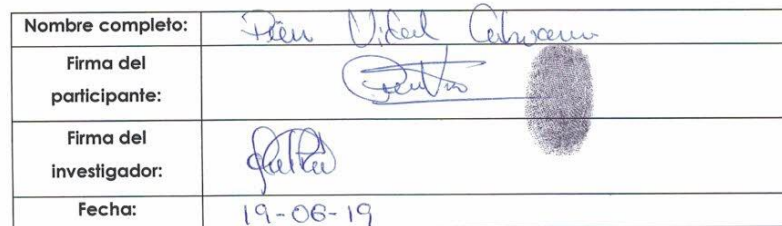 Nombre completo: Vidal
Firma del
participante:
Firma del
investigador:
Fecha: 19-06-19